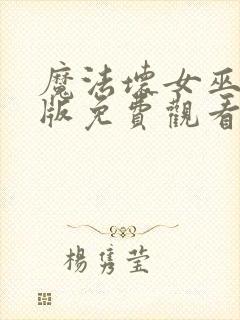 魔法壞女巫
版免費觀看
楊雋莹